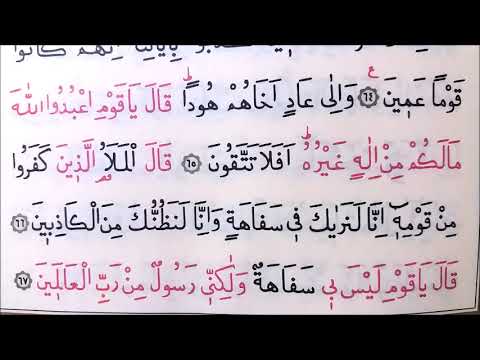 بِاٰيَاتِنَا اِنَّهُمْ كَانُوا
قَوْمًا عَمٖينَ ﴿٦٤﴾ ع وَاِلٰى عَادٍ اَخَاهُمْ هُودًاۜ قَالَ يَا قَوْمِ اعْبُدُوا اللّٰهَ
مَالَكُمْ مِنْ اِلٰهٍ غَيْرُهُۜ اَفَلَا تَتَّقُونَ ﴿٦٥﴾ قَالَ الْمَلَاُ الَّذٖينَ كَفَرُوا
مِنْ قَوْمِهٖٓ اِنَّا لَنَرٰيكَ فٖي سَفَاهَةٍ وَاِنَّا لَنَظُنُّكَ مِنَ الْكَاذِبٖينَ ﴿٦٦﴾
قَالَ يَا قَوْمِ لَيْسَ بٖي سَفَاهَةٌ وَلٰكِنّٖي رَسُولٌ مِنْ رَبِّ الْعَالَمٖينَ ﴿٦٧﴾